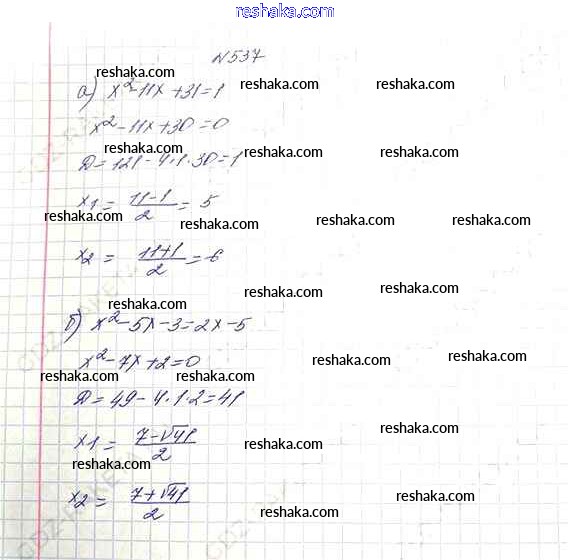 reshaka.com
№537
reshaka.com
а) x²-11x+31=1
reshaka.com reshaka.com
x²-11x+30=0
reshaka.com reshaka.com reshaka.com
D=121-4·1·30=1
x1 = 11-1/2 = 5
reshaka.com reshaka.com reshaka.com reshaka.com
x2 = 11+1/2 = 6
reshaka.com reshaka.com
reshaka.com
б) x²-5x-3=2x-5
x²-7x+2=0
reshaka.com reshaka.com
reshaka.com reshaka.com
D=49-4·1·2=41
x1 = 7-√41/2
reshaka.com reshaka.com
reshaka.com
x2 = 7+√41/2
reshaka.com
reshaka.com